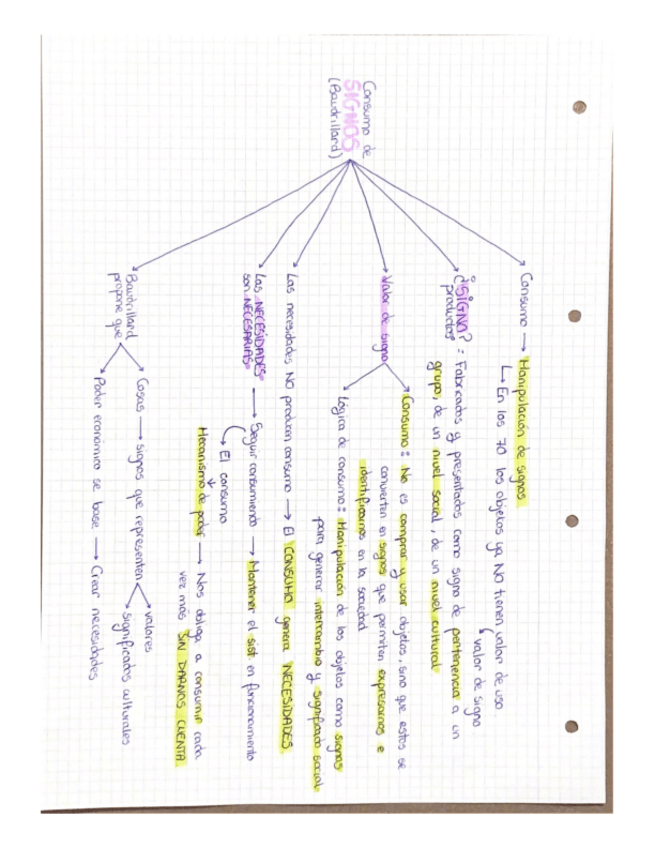 Consumo de
SIGNOS
(Baudrillard)
Consumo → Manipulación de signos
↳ En los 70 los objetos ya NO tienen valor de uso
valor de signo
¿SIGNO? = Fabricados y presentados como signo de pertenencia a un
productos
grupo, de un nivel social, de un nivel cultural
Valor de signo
Consumo: No es comprar y usar objetos, sino que estos se
convierten en signos que permiten expresarnos e
identificarnos en la sociedad
Lógica de consumo: Manipulación de los objetos como signos
para generar intercambio y significado social
Las necesidades NO producen consumo → El CONSUMO genera NECESIDADES
Las NECESIDADES → Seguir consumiendo → Mantener el sist en funcionamiento
son NECESARIAS
↳ El consumo
↓
Mecanismo de poder → Nos obliga a consumir cada
vez más SIN DARNOS CUENTA
Baudrillard
propone que
Cosas → signos que representen
valores
significados culturales
Poder económico se base → Crear necesidades